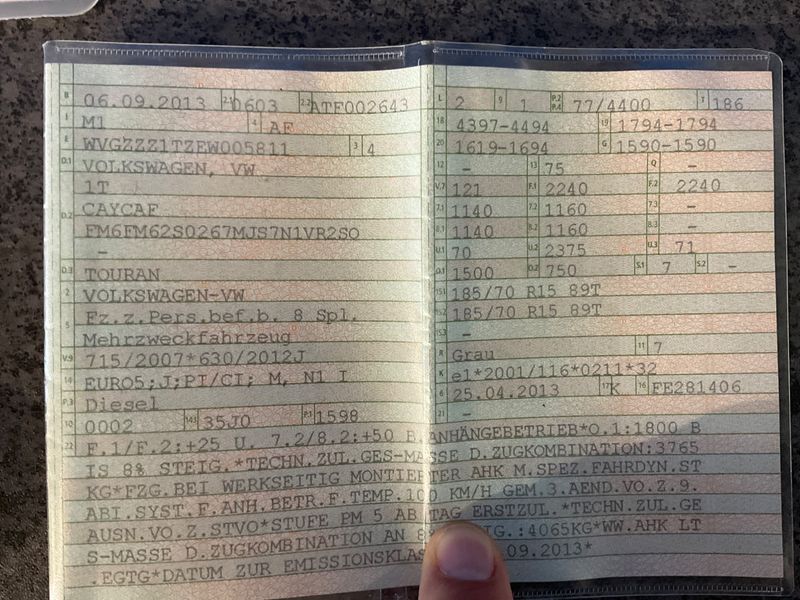 B 06.09.2013 2.1 0603 2.2 ATF002643
J M1 4 AF
E WVGZZZ1TZEW005811 3 4
D.1 VOLKSWAGEN, VW
1T
D.2 CAYCAF
FM6FM62S0267MJS7N1VR2S0
-
D.3 TOURAN
2 VOLKSWAGEN-VW
5 Fz.z.Pers.bef.b. 8 Spl.
Mehrzweckfahrzeug
V.9 715/2007*630/2012J
14 EURO5;J;PI/CI; M, N1 I
P.3 Diesel
10 0002 14.1 35J0 P.1 1598
L 2 9 1 P.2 P.4 77/4400 T 186
18 4397-4494 19 1794-1794
20 1619-1694 G 1590-1590
12 - 13 75 Q -
V.7 121 F.1 2240 F.2 2240
7.1 1140 7.2 1160 7.3 -
8.1 1140 8.2 1160 8.3 -
U.1 70 U.2 2375 U.3 71
O.1 1500 O.2 750 S.1 7 S.2 -
15.1 185/70 R15 89T
15.2 185/70 R15 89T
15.3 -
R Grau 11 7
K e1*2001/116*0211*32
6 25.04.2013 17 K 16 FE281406
21 -
22 F.1/F.2:+25 U. 7.2/8.2:+50 B.ANHÄNGEBETRIEB*O.1:1800 B
IS 8% STEIG.*TECHN.ZUL.GES-MASSE D.ZUGKOMBINATION:3765
KG*FZG.BEI WERKSEITIG MONTIERTER AHK M.SPEZ.FAHRDYN.ST
ABI.SYST.F.ANH.BETR.F.TEMP.100 KM/H GEM.3.AEND.VO.Z.9.
AUSN.VO.Z.STVO*STUFE PM 5 AB TAG ERSTZUL.*TECHN.ZUL.GE
S-MASSE D.ZUGKOMBINATION AN 8% :4065KG*WW.AHK LT
.EGTG*DATUM ZUR EMISSIONSKLAS .09.2013*